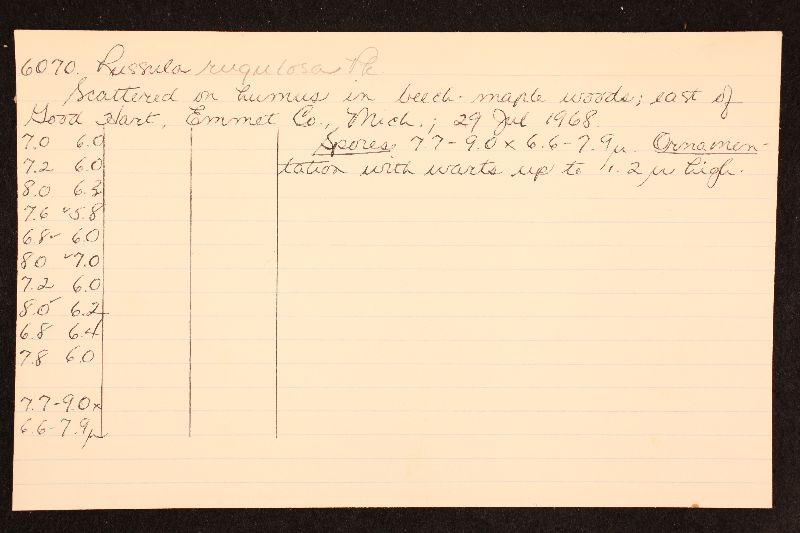 6070. Russula rugulosa Pk.
Scattered on humus in beech-maple woods; east of
Good Hart, Emmet Co., Mich.; 29 Jul 1968.
Spores 7.7-9.0 x 6.6-7.9 µ. Ornamen-
tation with warts up to 1.2 µ high.
7.0 6.0
7.2 6.0
8.0 6.3
7.6 5.8
6.8 6.0
8.0 7.0
7.2 6.0
8.0 6.2
6.8 6.4
7.8 6.0
7.7-9.0 x
6.6-7.9 µ